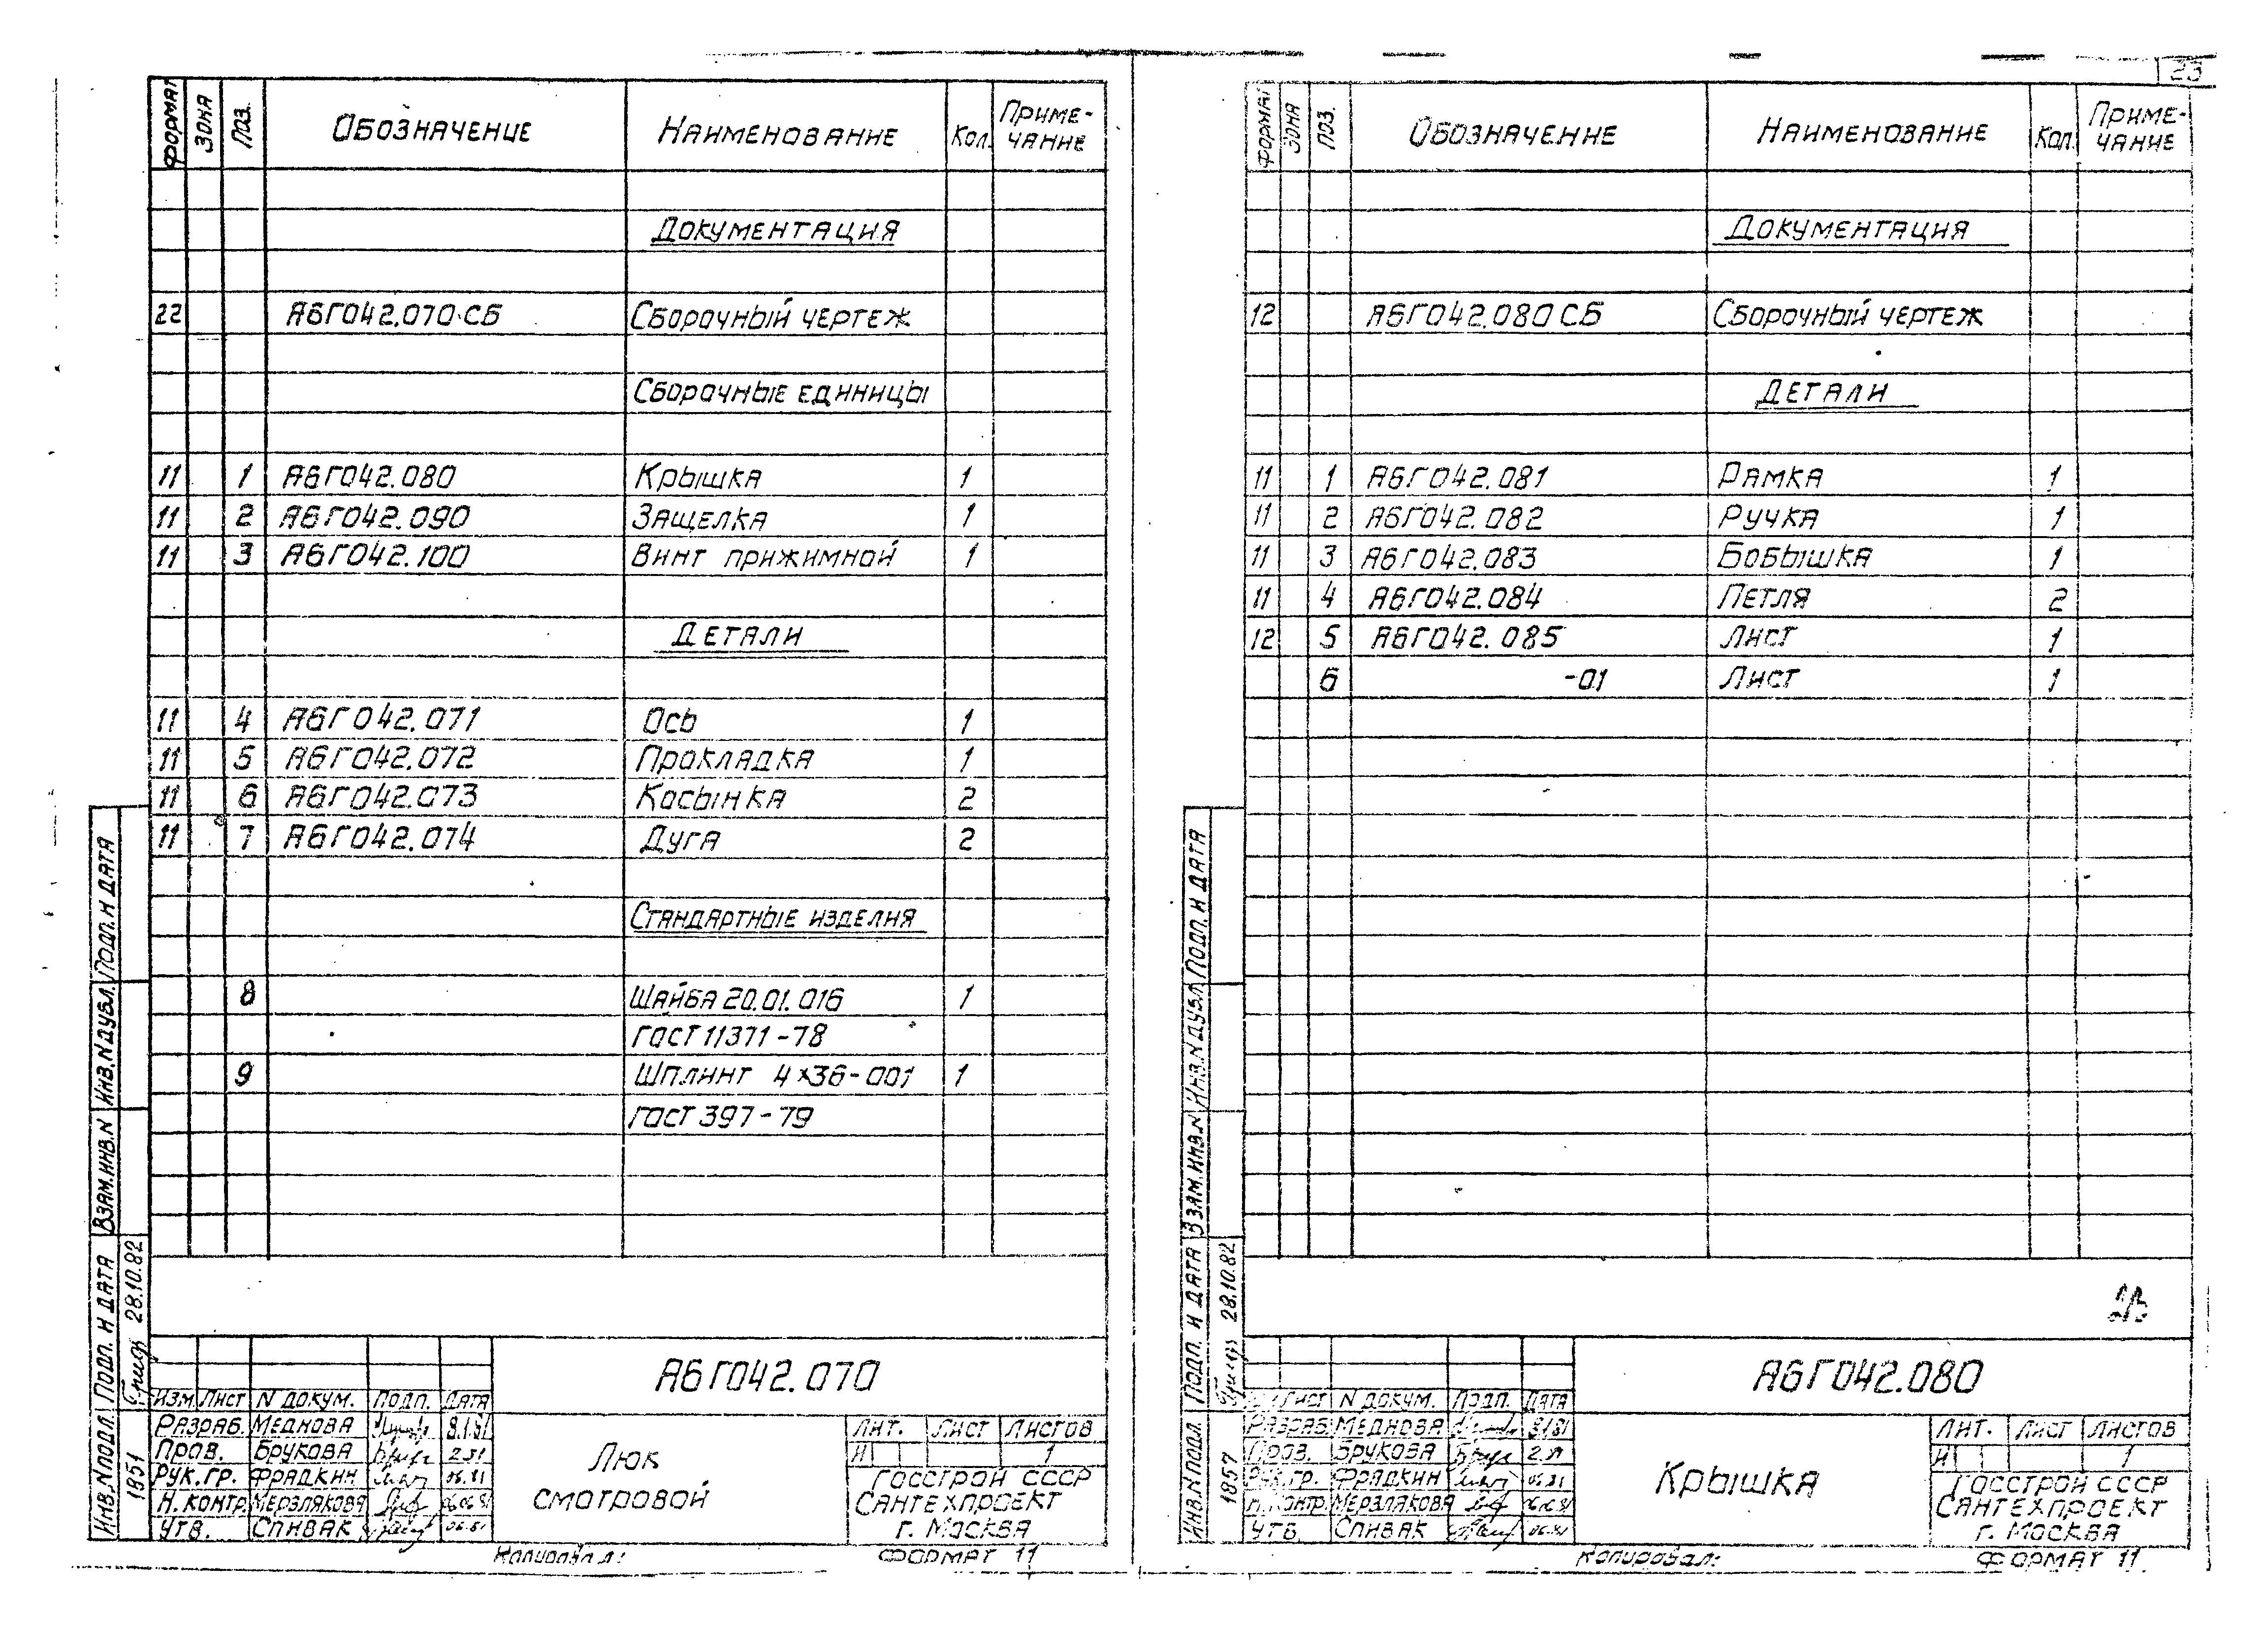 23
ФОРМАТ ЗОНА ПОЗ. ОБОЗНАЧЕНИЕ НАИМЕНОВАНИЕ КОЛ. ПРИМЕ-
ЧАНИЕ
ДОКУМЕНТАЦИЯ
22 А6Г042.070 СБ СБОРОЧНЫЙ ЧЕРТЕЖ
СБОРОЧНЫЕ ЕДИНИЦЫ
11 1 А6Г042.080 КРЫШКА 1
11 2 А6Г042.090 ЗАЩЕЛКА 1
11 3 А6Г042.100 ВИНТ ПРИЖИМНОЙ 1
ДЕТАЛИ
11 4 А6Г042.071 ОСЬ 1
11 5 А6Г042.072 ПРОКЛАДКА 1
11 6 А6Г042.073 КОСЫНКА 2
11 7 А6Г042.074 ДУГА 2
СТАНДАРТНЫЕ ИЗДЕЛИЯ
8 ШАЙБА 20.01.016 1
ГОСТ 11371-78
9 ШПЛИНТ 4×36-001 1
ГОСТ 397-79
ИНВ.N ПОДЛ. ПОДП. И ДАТА ВЗАМ.ИНВ.N ИНВ.N ДУБЛ. ПОДП. И ДАТА
1851 28.10.82
А6Г042.070
ИЗМ. ЛИСТ N ДОКУМ. ПОДП. ДАТА
РАЗРАБ. МЕДНОВА
ПРОВ. БРУКОВА
РУК.ГР. ФРАДКИН 06.81
Н.КОНТР. МЕРЗЛЯКОВА
УТВ. СПИВАК 06.81
ЛЮК
СМОТРОВОЙ
ЛИТ. ЛИСТ ЛИСТОВ
И 1
ГОССТРОЙ СССР
САНТЕХПРОЕКТ
г. МОСКВА
КОПИРОВАЛ: ФОРМАТ 11
ФОРМАТ ЗОНА ПОЗ. ОБОЗНАЧЕНИЕ НАИМЕНОВАНИЕ КОЛ. ПРИМЕ-
ЧАНИЕ
ДОКУМЕНТАЦИЯ
12 А6Г042.080 СБ СБОРОЧНЫЙ ЧЕРТЕЖ
ДЕТАЛИ
11 1 А6Г042.081 РАМКА 1
11 2 А6Г042.082 РУЧКА 1
11 3 А6Г042.083 БОБЫШКА 1
11 4 А6Г042.084 ПЕТЛЯ 2
12 5 А6Г042.085 ЛИСТ 1
6 -01 ЛИСТ 1
ИНВ.N ПОДЛ. ПОДП. И ДАТА ВЗАМ.ИНВ.N ИНВ.N ДУБЛ. ПОДП. И ДАТА
1857 28.10.82
А6Г042.080
ЛИСТ N ДОКУМ. ПОДП. ДАТА
РАЗРАБ. МЕДНОВА
ПРОВ. БРУКОВА
РУК.ГР. ФРАДКИН 06.81
Н.КОНТР. МЕРЗЛЯКОВА
УТВ. СПИВАК 06.81
КРЫШКА
ЛИТ. ЛИСТ ЛИСТОВ
И 1
ГОССТРОЙ СССР
САНТЕХПРОЕКТ
г. МОСКВА
КОПИРОВАЛ: ФОРМАТ 11